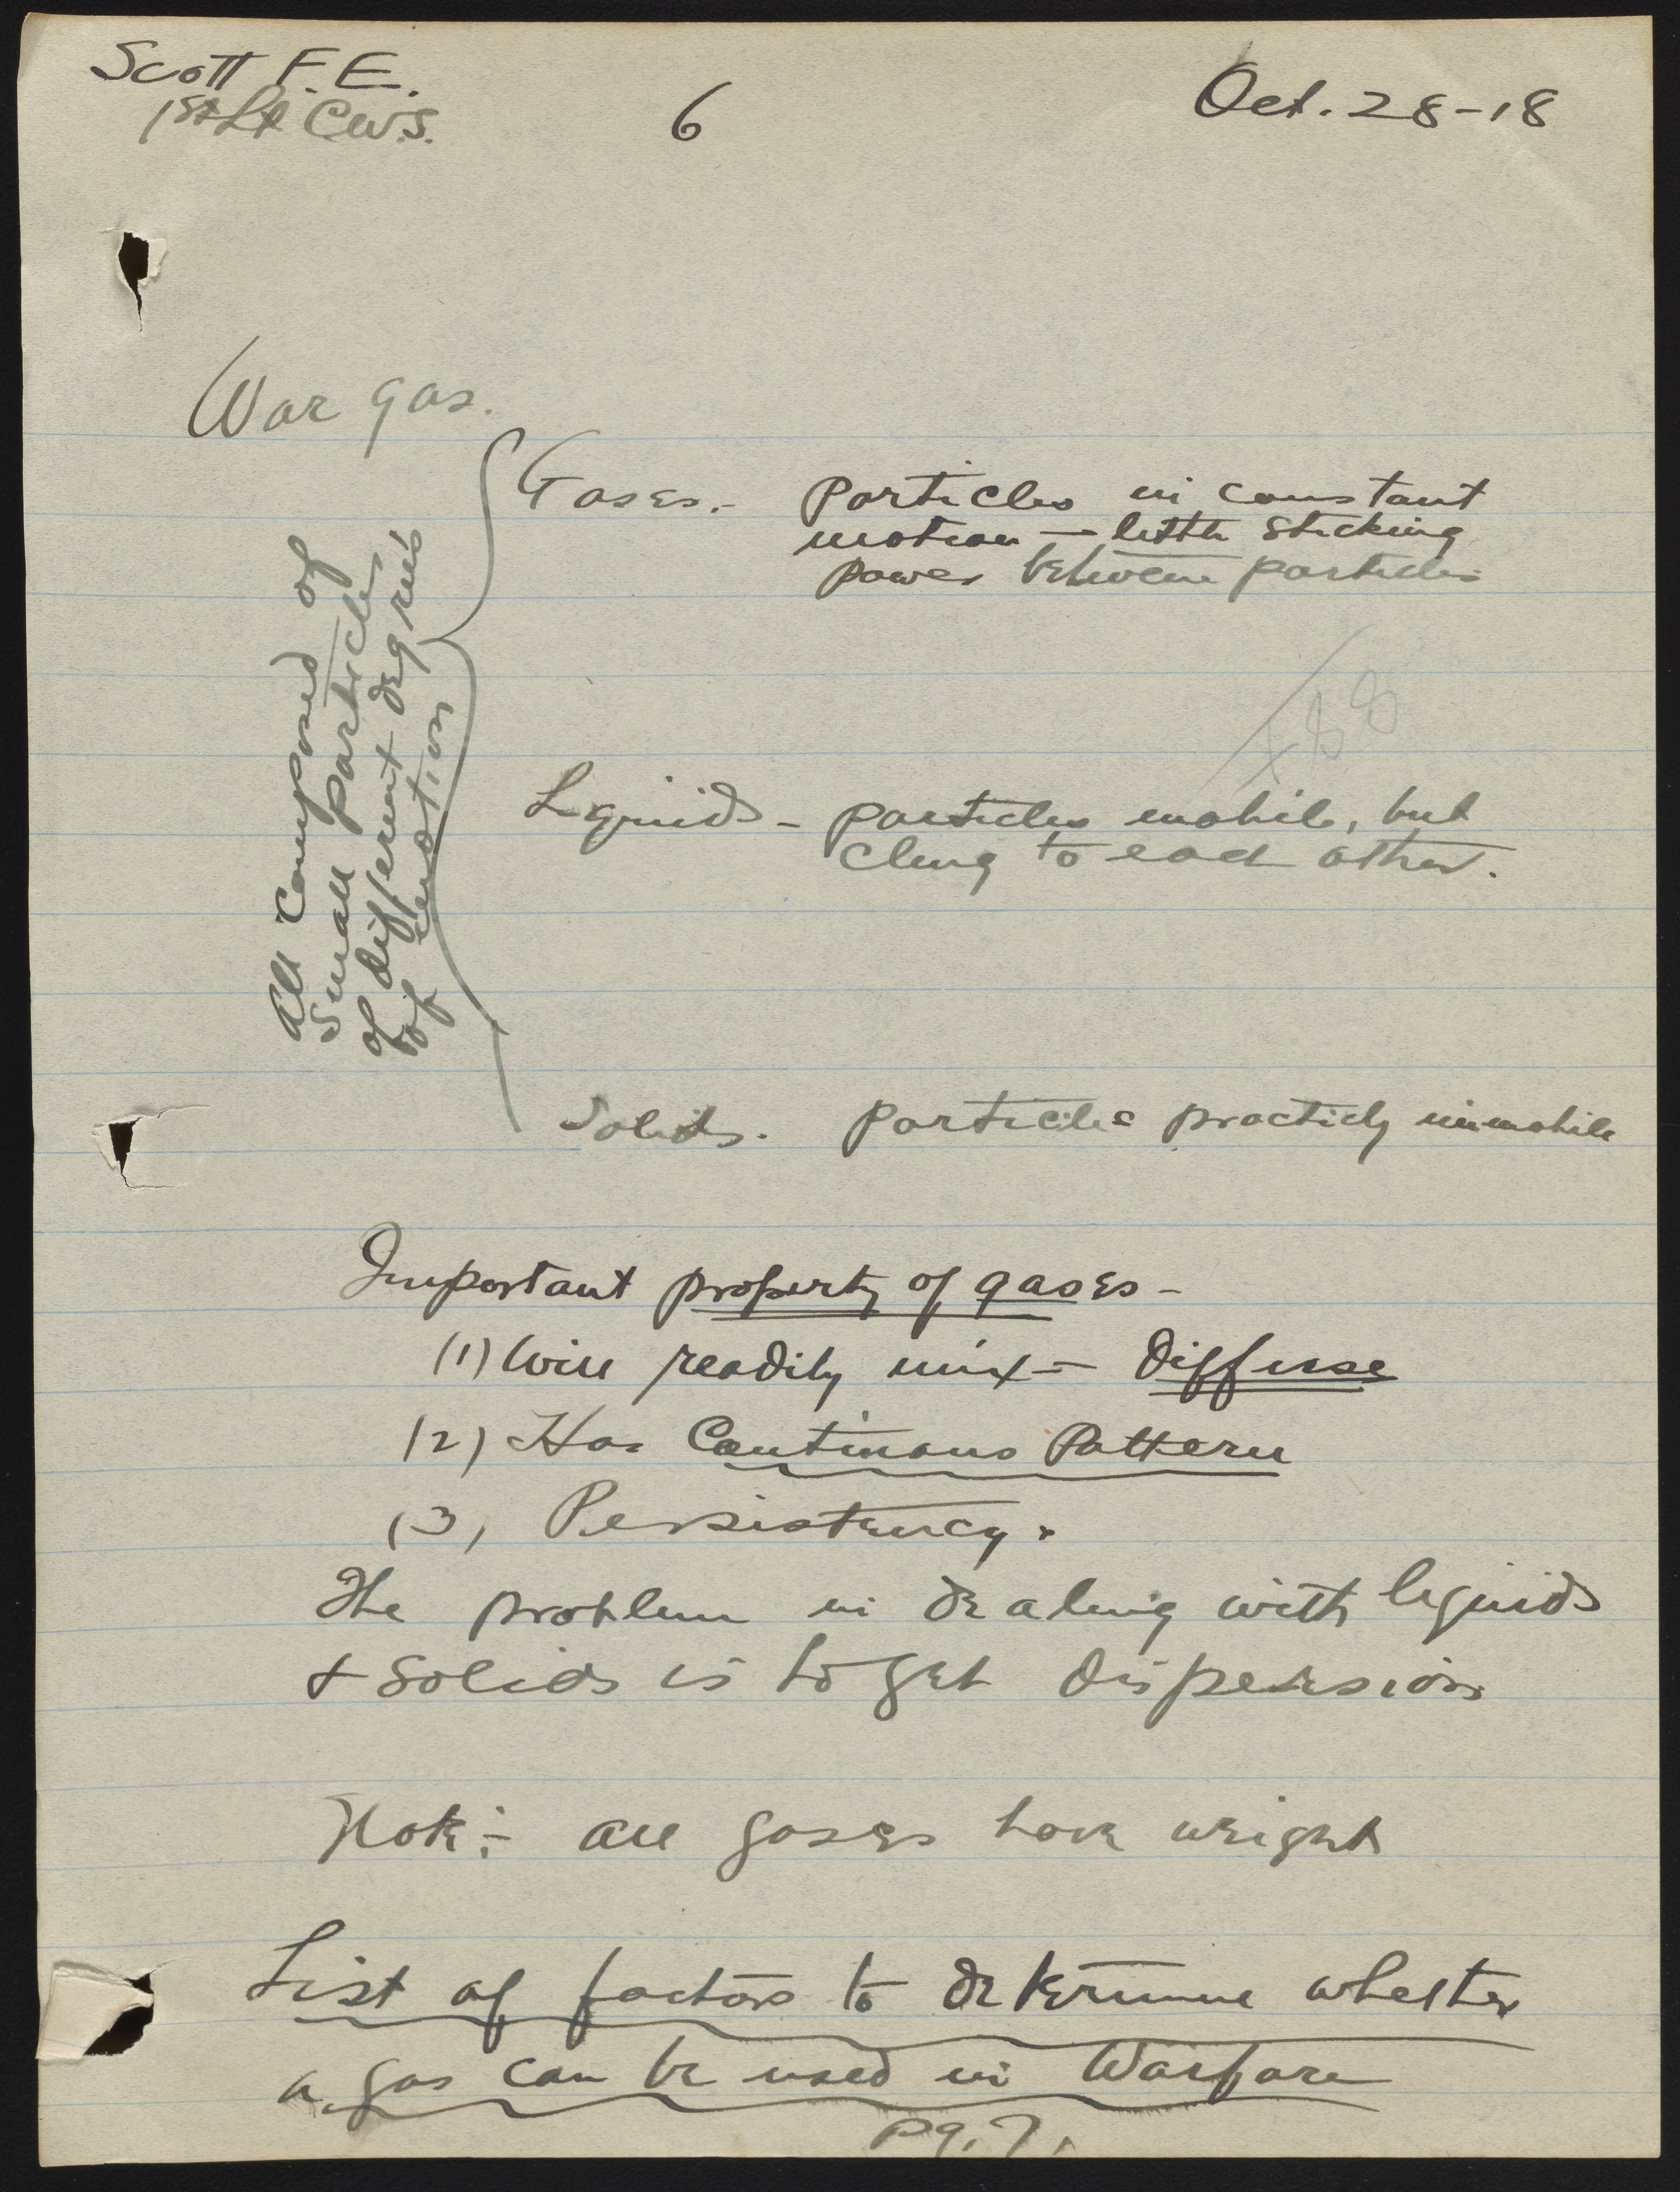 Scott F.E.
1st Lt C.W.S.
6
Oct. 28-18
War gas.
All composed of
small particles
of different degrees
of motion
Gases.- particles in constant
motion — little sticking
power between particles
Liquids - particles mobile, but
cling to each other.
Solids. particles practicly immobile
Important property of gases -
(1) Will readily mix - Diffuse
(2) Has Continous Pattern
(3) Persistency.
The problem in dealing with liquids
+ solids is to get dispersion
Note:- all gases have weight
List of factors to determine whether
a gas can be used in Warfare
pg. 7.